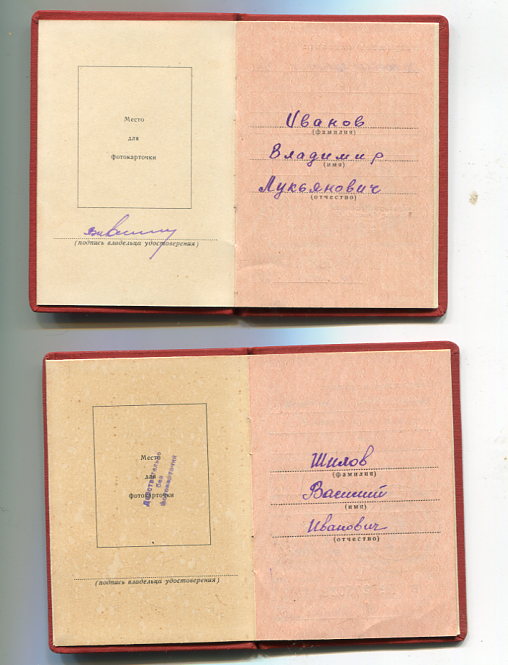 Место
для
фотокарточки
(подпись владельца удостоверения)
Иванов
(фамилия)
Владимир
(имя)
Лукьянович
(отчество)
Место
для
фотокарточки
Действительно
без
фотокарточки
(подпись владельца удостоверения)
Шилов
(фамилия)
Василий
(имя)
Иванович
(отчество)